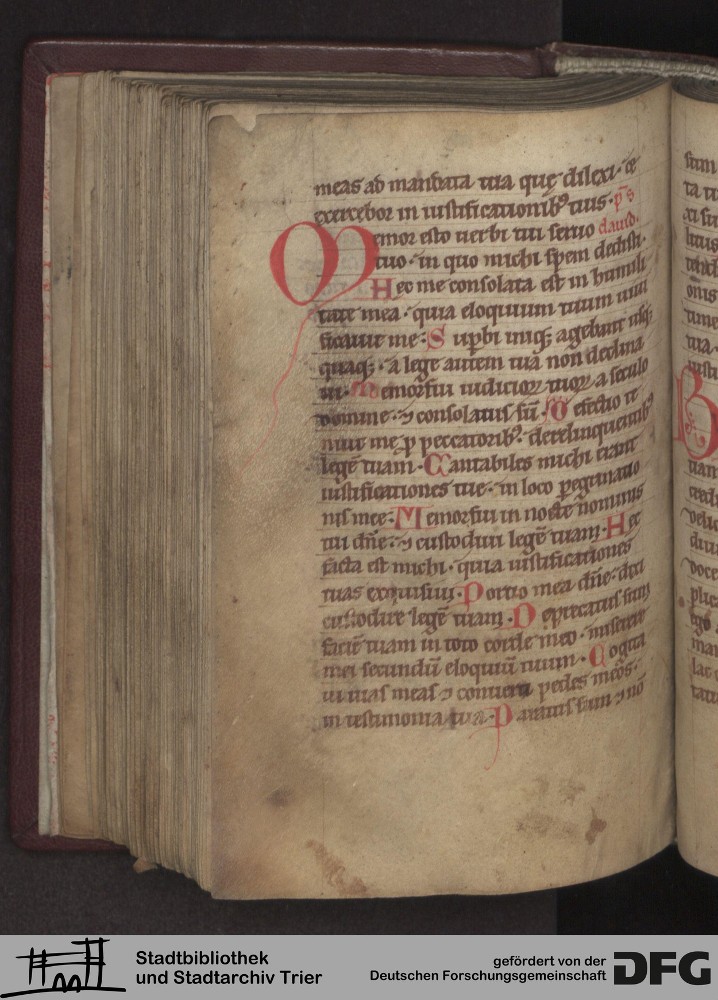 meas ad mandata tua quę dilexi · ⁊
exercebor in iustificationib' tuis · p̄s
Memor esto uerbi tui seruo dauid.
tuo · in quo michi spem dedisti ·
Hec me consolata est in humili
tate mea · quia eloquium tuum uiui
ficauit me · Supbi iniq; agebant usq;
quaq; · a lege autem tua non declina
ui · Memor fui iudicioꝝ tuoꝝ a seculo
domine · ⁊ consolatus sū · Defectio te
nuit me p peccatorib' · derelinquentib'
legē tuam · Cantabiles michi erant
iustificationes tue · in loco pegrinatio
nis mee · Memor fui in nocte nominis
tui dn̄e · ⁊ custodiui legē tuam · Hec
facta est michi · quia iustificationes
tuas exquisiui · Portio mea dn̄e · dixi
custodire legē tuam · Deprecatus sum
faciē tuam in toto corde meo · miserere
mei secundū eloquiū tuum · Cogita
ui uias meas ⁊ conuerti pedes meos ·
in testimonia tua · Paratus sum ⁊ nō
Stadtbibliothek
und Stadtarchiv Trier
gefördert von der
Deutschen Forschungsgemeinschaft
DFG